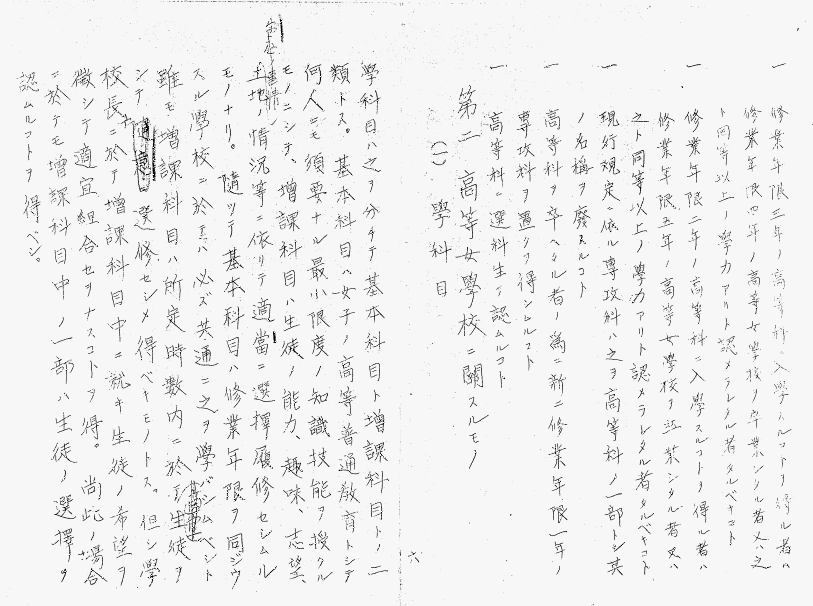 一 修業年限三年ノ高等科ニ入學スルコトヲ得ル者ハ
修業年限四年ノ高等女學校ヲ卒業シタル者又ハ之
ト同等以上ノ學力アリト認メラレタル者タルベキコト
一 修業年限二年ノ高等科ニ入學スルコトヲ得ル者ハ
修業年限五年ノ高等女學校ヲ卒業シタル者又ハ
之ト同等以上ノ學力アリト認メラレタル者タルベキコト
一 現行規定ニ依ル專攻科ハ之ヲ高等科ノ一部トシ其
ノ名稱ヲ廢スルコト
一 高等科ヲ卒ヘタル者ノ爲ニ新ニ修業年限一年ノ
專攻科ヲ置クヲ得シムルコト
一 高等科ニ選科生ヲ認ムルコト
第二 高等女學校ニ關スルモノ
(一) 學科目
六
學科目ハ之ヲ分チテ基本科目ト增課科目トノ二
類トス。基本科目ハ女子ノ高等普通敎育トシテ
何人ニモ須要ナル最小限度ノ知識技能ヲ授クル
モノニシテ、增課科目ハ生徒ノ能力、趣味、志望、
土地ノ情況等ニ依リテ適當ニ選擇履修セシムル
モノナリ。隨ツテ基本科目ハ修業年限ヲ同ジウ
スル學校ニ於テハ必ズ共通ニ之ヲ學バシムベシト
雖モ增課科目ハ所定時數內ニ於テ生徒ヲ
シテ選修セシメ得ベキモノトス。但シ學
校長ニ於テ增課科目中ニ就キ生徒ノ希望ヲ
徵シテ適宜組合セヲナスコトヲ得。尚此ノ場合
ニ於テモ增課科目中ノ一部ハ生徒ノ選擇ヲ
認ムルコトヲ得ベシ。